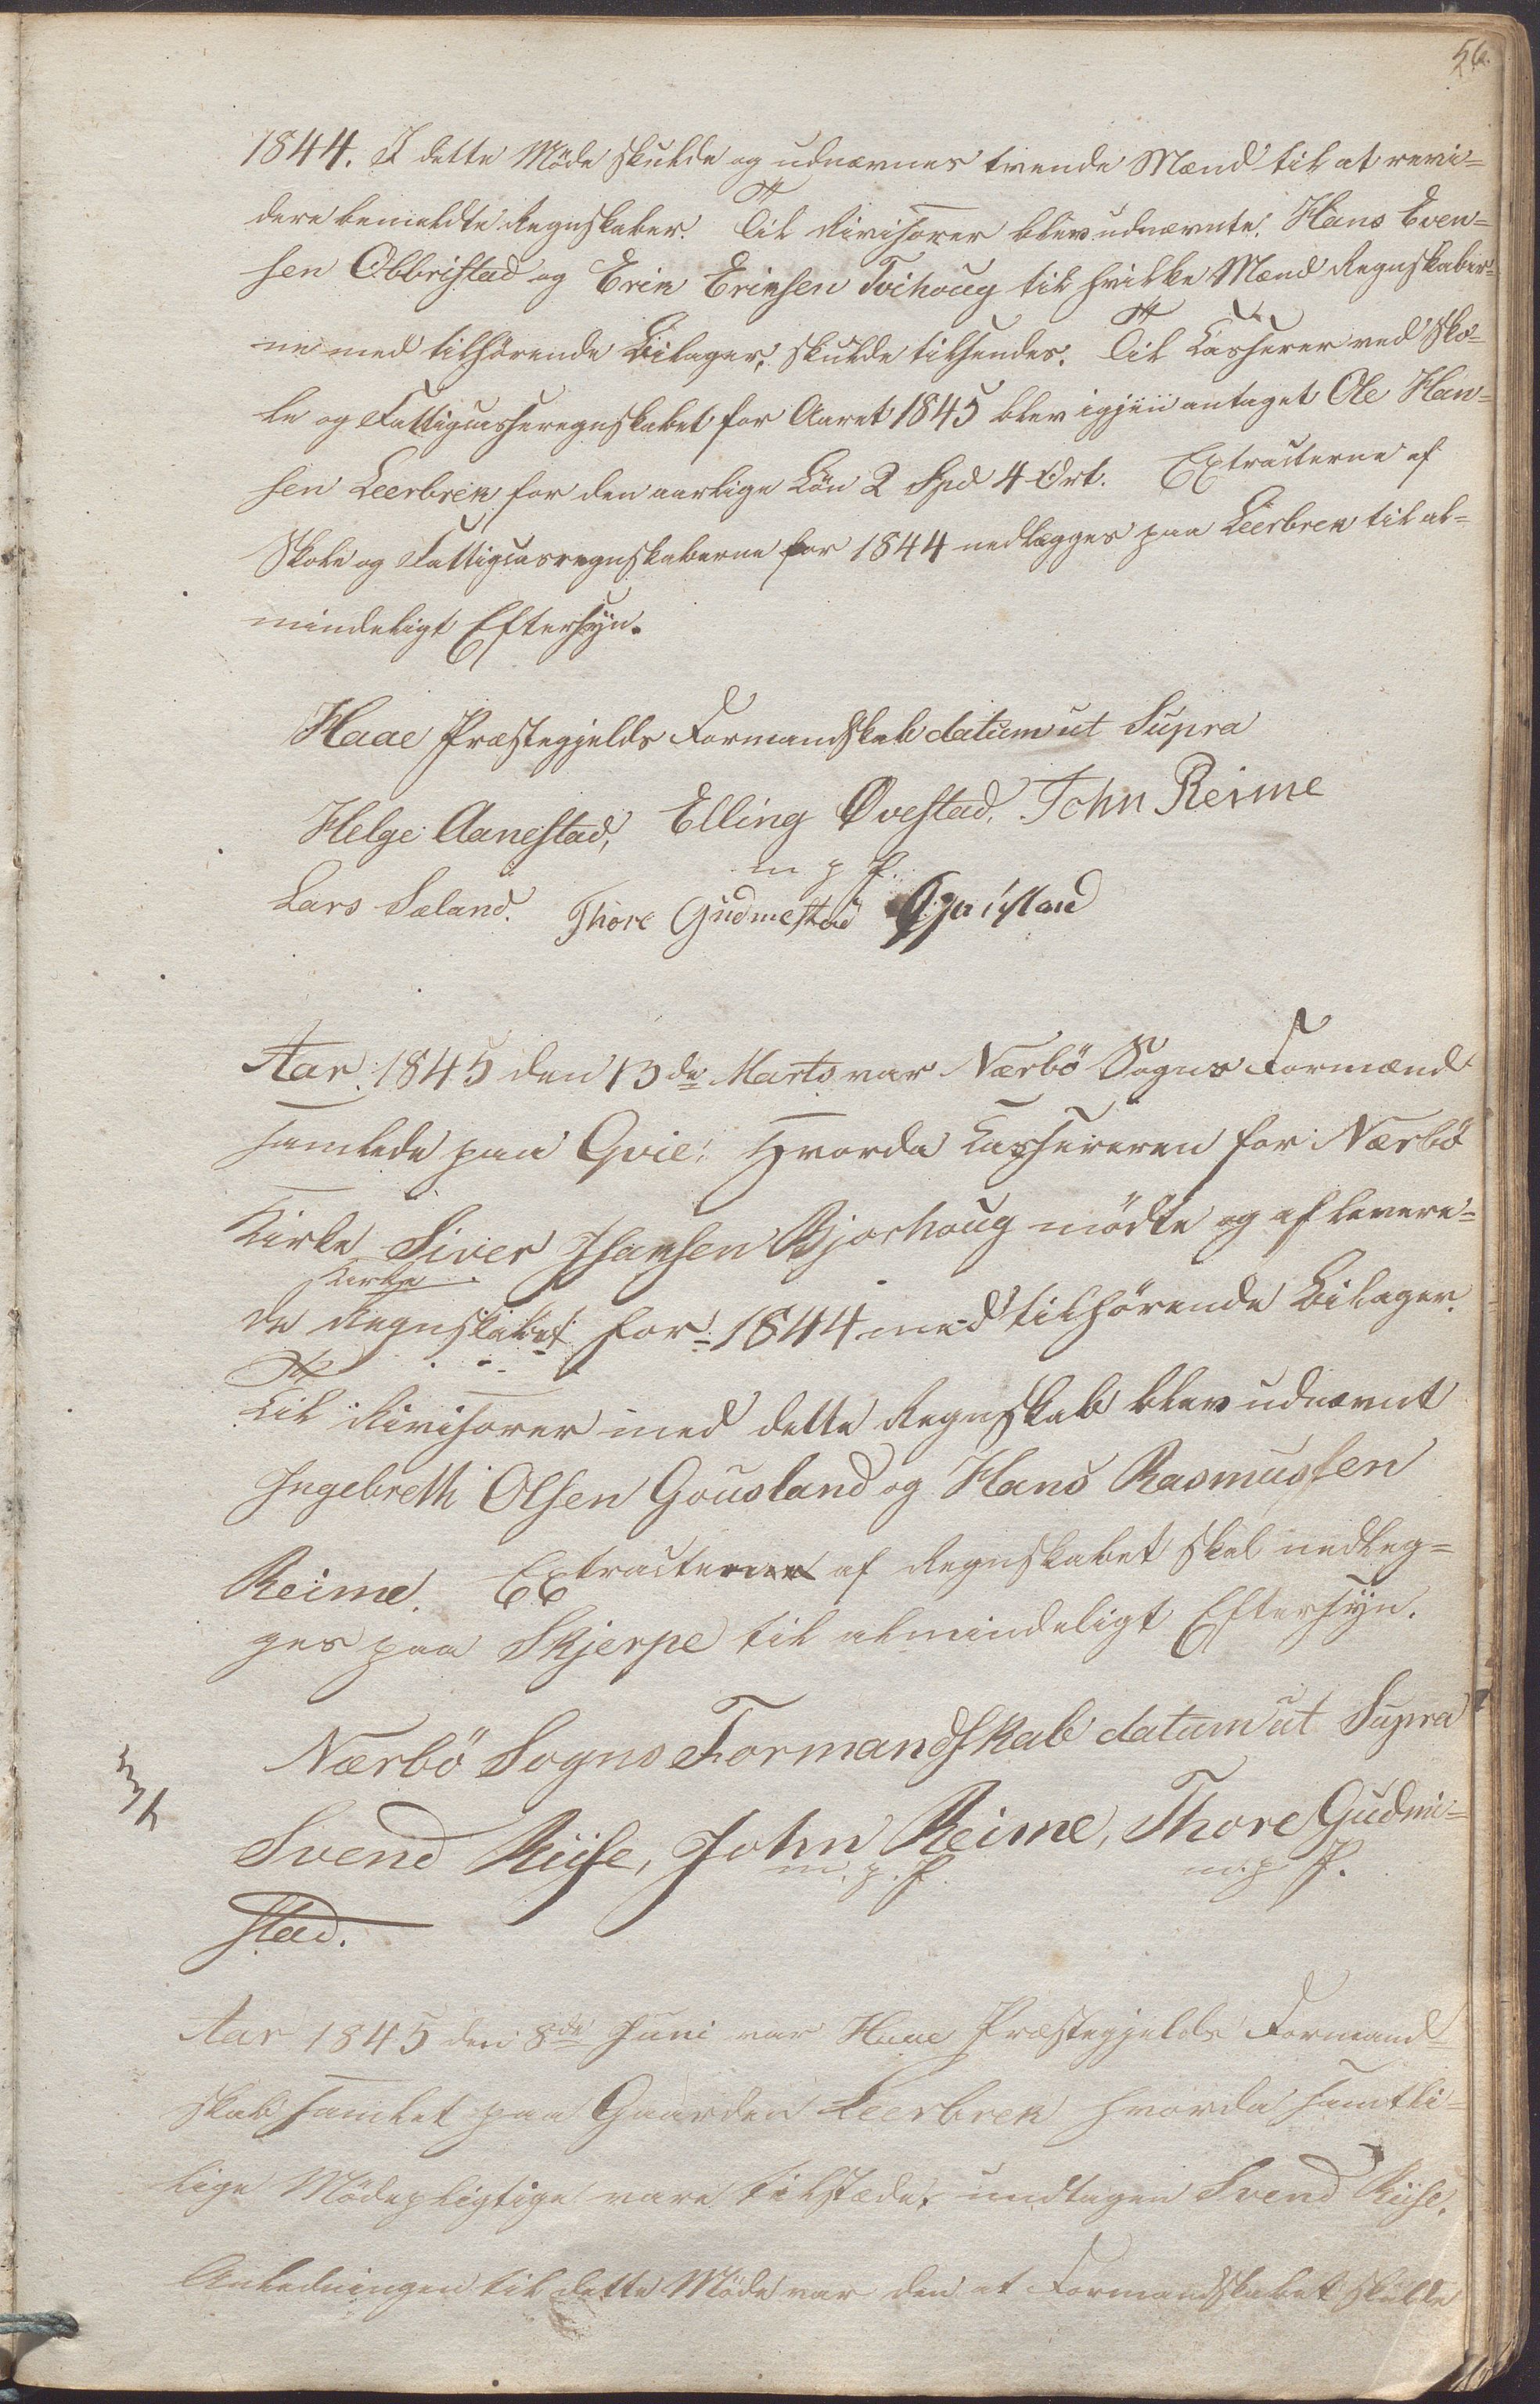 56.
1844. I dette Møde skulde og udnævnes tvende Mænd til at revi=
dere bemeldte Regnskaber. Til Rivisorer blev udnævnte. Hans Even=
sen Obbristad og Erik Eriksen Tvihoug til hvilke Mænd Regnskaber=
ne med tilhørende Bilager, skulde tilsendes. Til Casserer ved Sko=
le og Fattigcasseregnskabet for Aaret 1845 blev igjen antaget Ole Han=
sen Leerbrek for den aarlige Løn 2 Spd 4 Ort. Extracterne af
Skole og Fattigcasregnskaberne for 1844 nedlægges paa Leerbrek til al=
mindeligt Eftersyn.
Haae Præstegjelds Formandskab datum ut Supra
Helge Aanestad, Elling Ovestad, John Reime
m p P.
Lars Sæland. Thore Gudmestad
Aar 1845 den 13de Marts var Nærbø Sogns Formænd
samlede paa Qvie. Hvorda Cassereren for Nærbø
Kirke Siver Isaksen Bjorhoug mødte og aflevere=
Kirke
de Regnskabet for 1844 med tilhørende Bilager.
Til Rivisorer med dette Regnskab blev udnævnt
Ingebreth Olsen Gousland og Hans Rasmussen
Reime. Extracterne af Regnskabet skal nedleg=
ges paa Skjerpe til almindeligt Eftersyn.
Nærbø Sogns Formandskab datum ut Supra
Svend Riise, John Reime, Thore Gudmi=
m. p. P. m. p P.
stad.
Aar 1845 den 8de Juni var Haae Præstegjelds Formand=
skab samlet paa Gaarden Leerbrek hvorda samtli=
lige Mødepligtige vare tilstæde, undtagen Svend Riise.
Anledningen til dette Møde var den at Formandskabet skulde